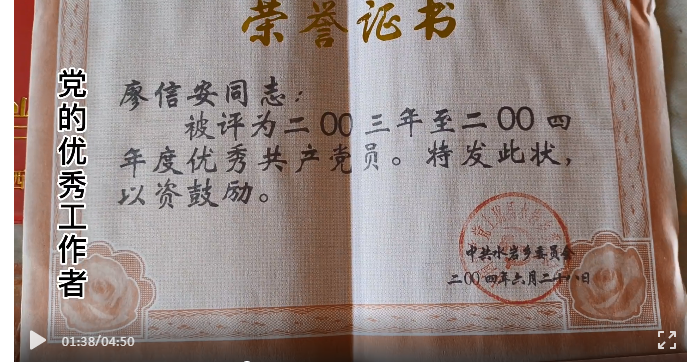 荣誉证书
党的优秀工作者
廖信安同志：
被评为二00三年至二00四
年度优秀共产党员。特发此状，
以资鼓励。
中共水岩乡委员会
二00四年六月二十八日
01:38/04:50